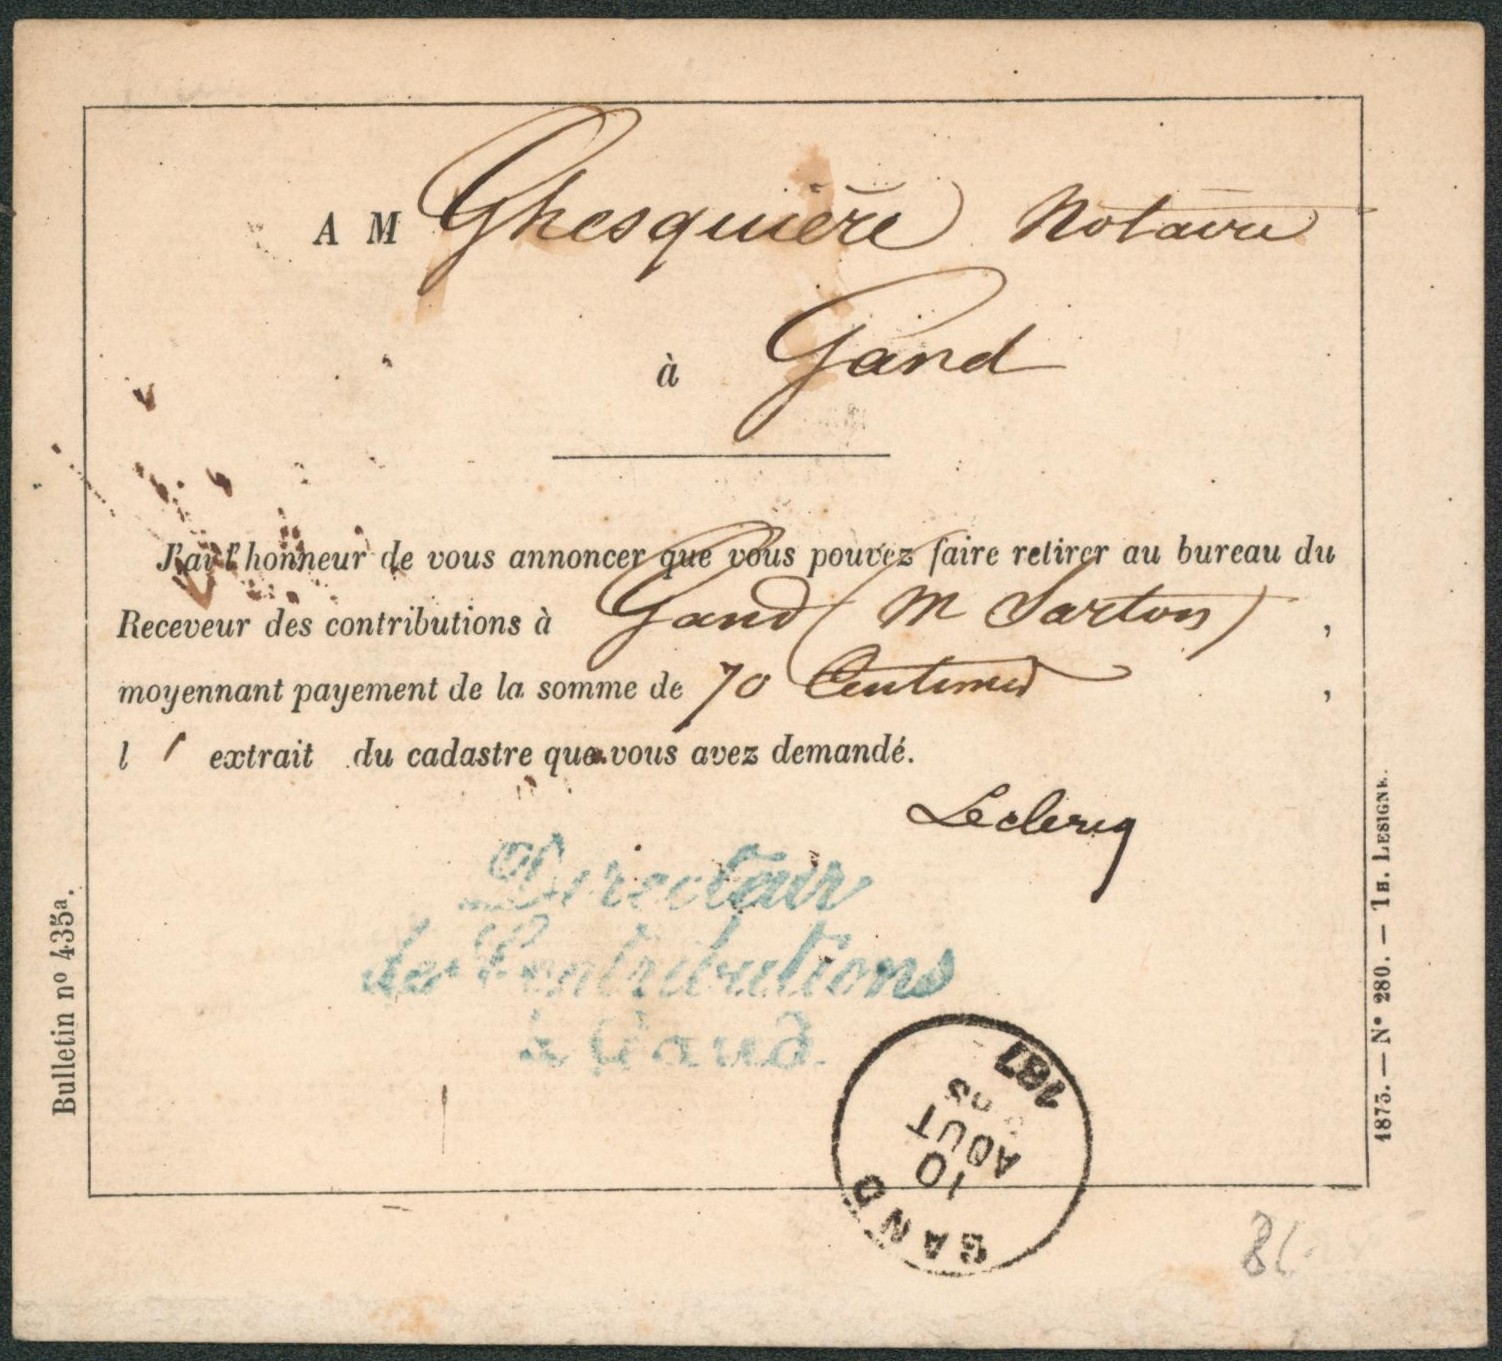 A M Ghesquière Notaire
à Gand
J'ai l'honneur de vous annoncer que vous pouvez faire retirer au bureau du
Receveur des contributions à Gand (M Sarton) ,
moyennant payement de la somme de 70 Centimes ,
l ' extrait du cadastre que vous avez demandé.
Leclercq
Directeur
des Contributions
à Gand.
GAND
10
AOUT
187
Bulletin nº 435ª.
1875. — Nº 280. — LESIGNE.